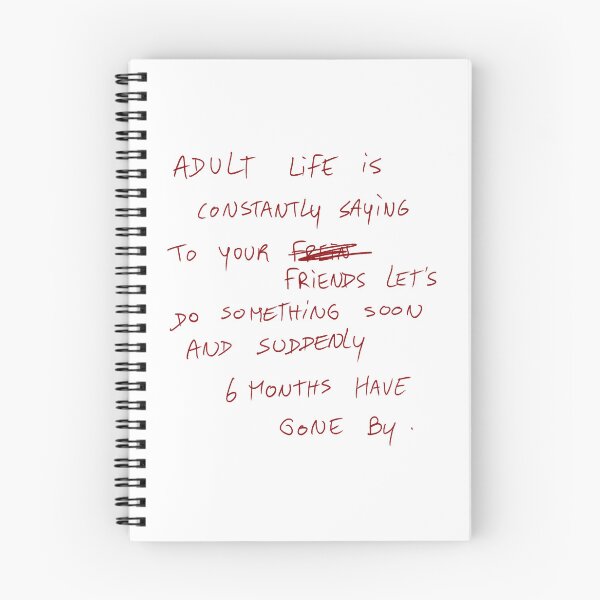 ADULT LiFE iS
CONSTANTLY SAYiNG
TO YOUR
FRiENDS LET'S
DO SOMETHiNG SOON
AND SUDDENLY
6 MONTHS HAVE
GONE By.